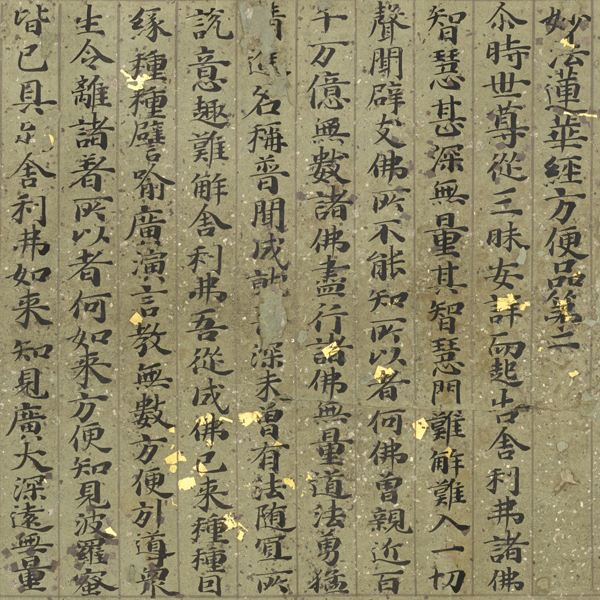 妙法蓮華經方便品第二
尒時世尊從三昧安詳而起告舍利弗諸佛
智慧甚深無量其智慧門難解難入一切
聲聞辟支佛所不能知所以者何佛曾親近百
千万億無數諸佛盡行諸佛無量道法勇猛
精進名稱普聞成就深未曾有法随冝所
說意趣難解舍利弗吾從成佛已来種種因
緣種種譬喻廣演言教無數方便引導衆
生令離諸著所以者何如来方便知見波羅蜜
皆已具足舍利弗如来知見廣大深遠無量